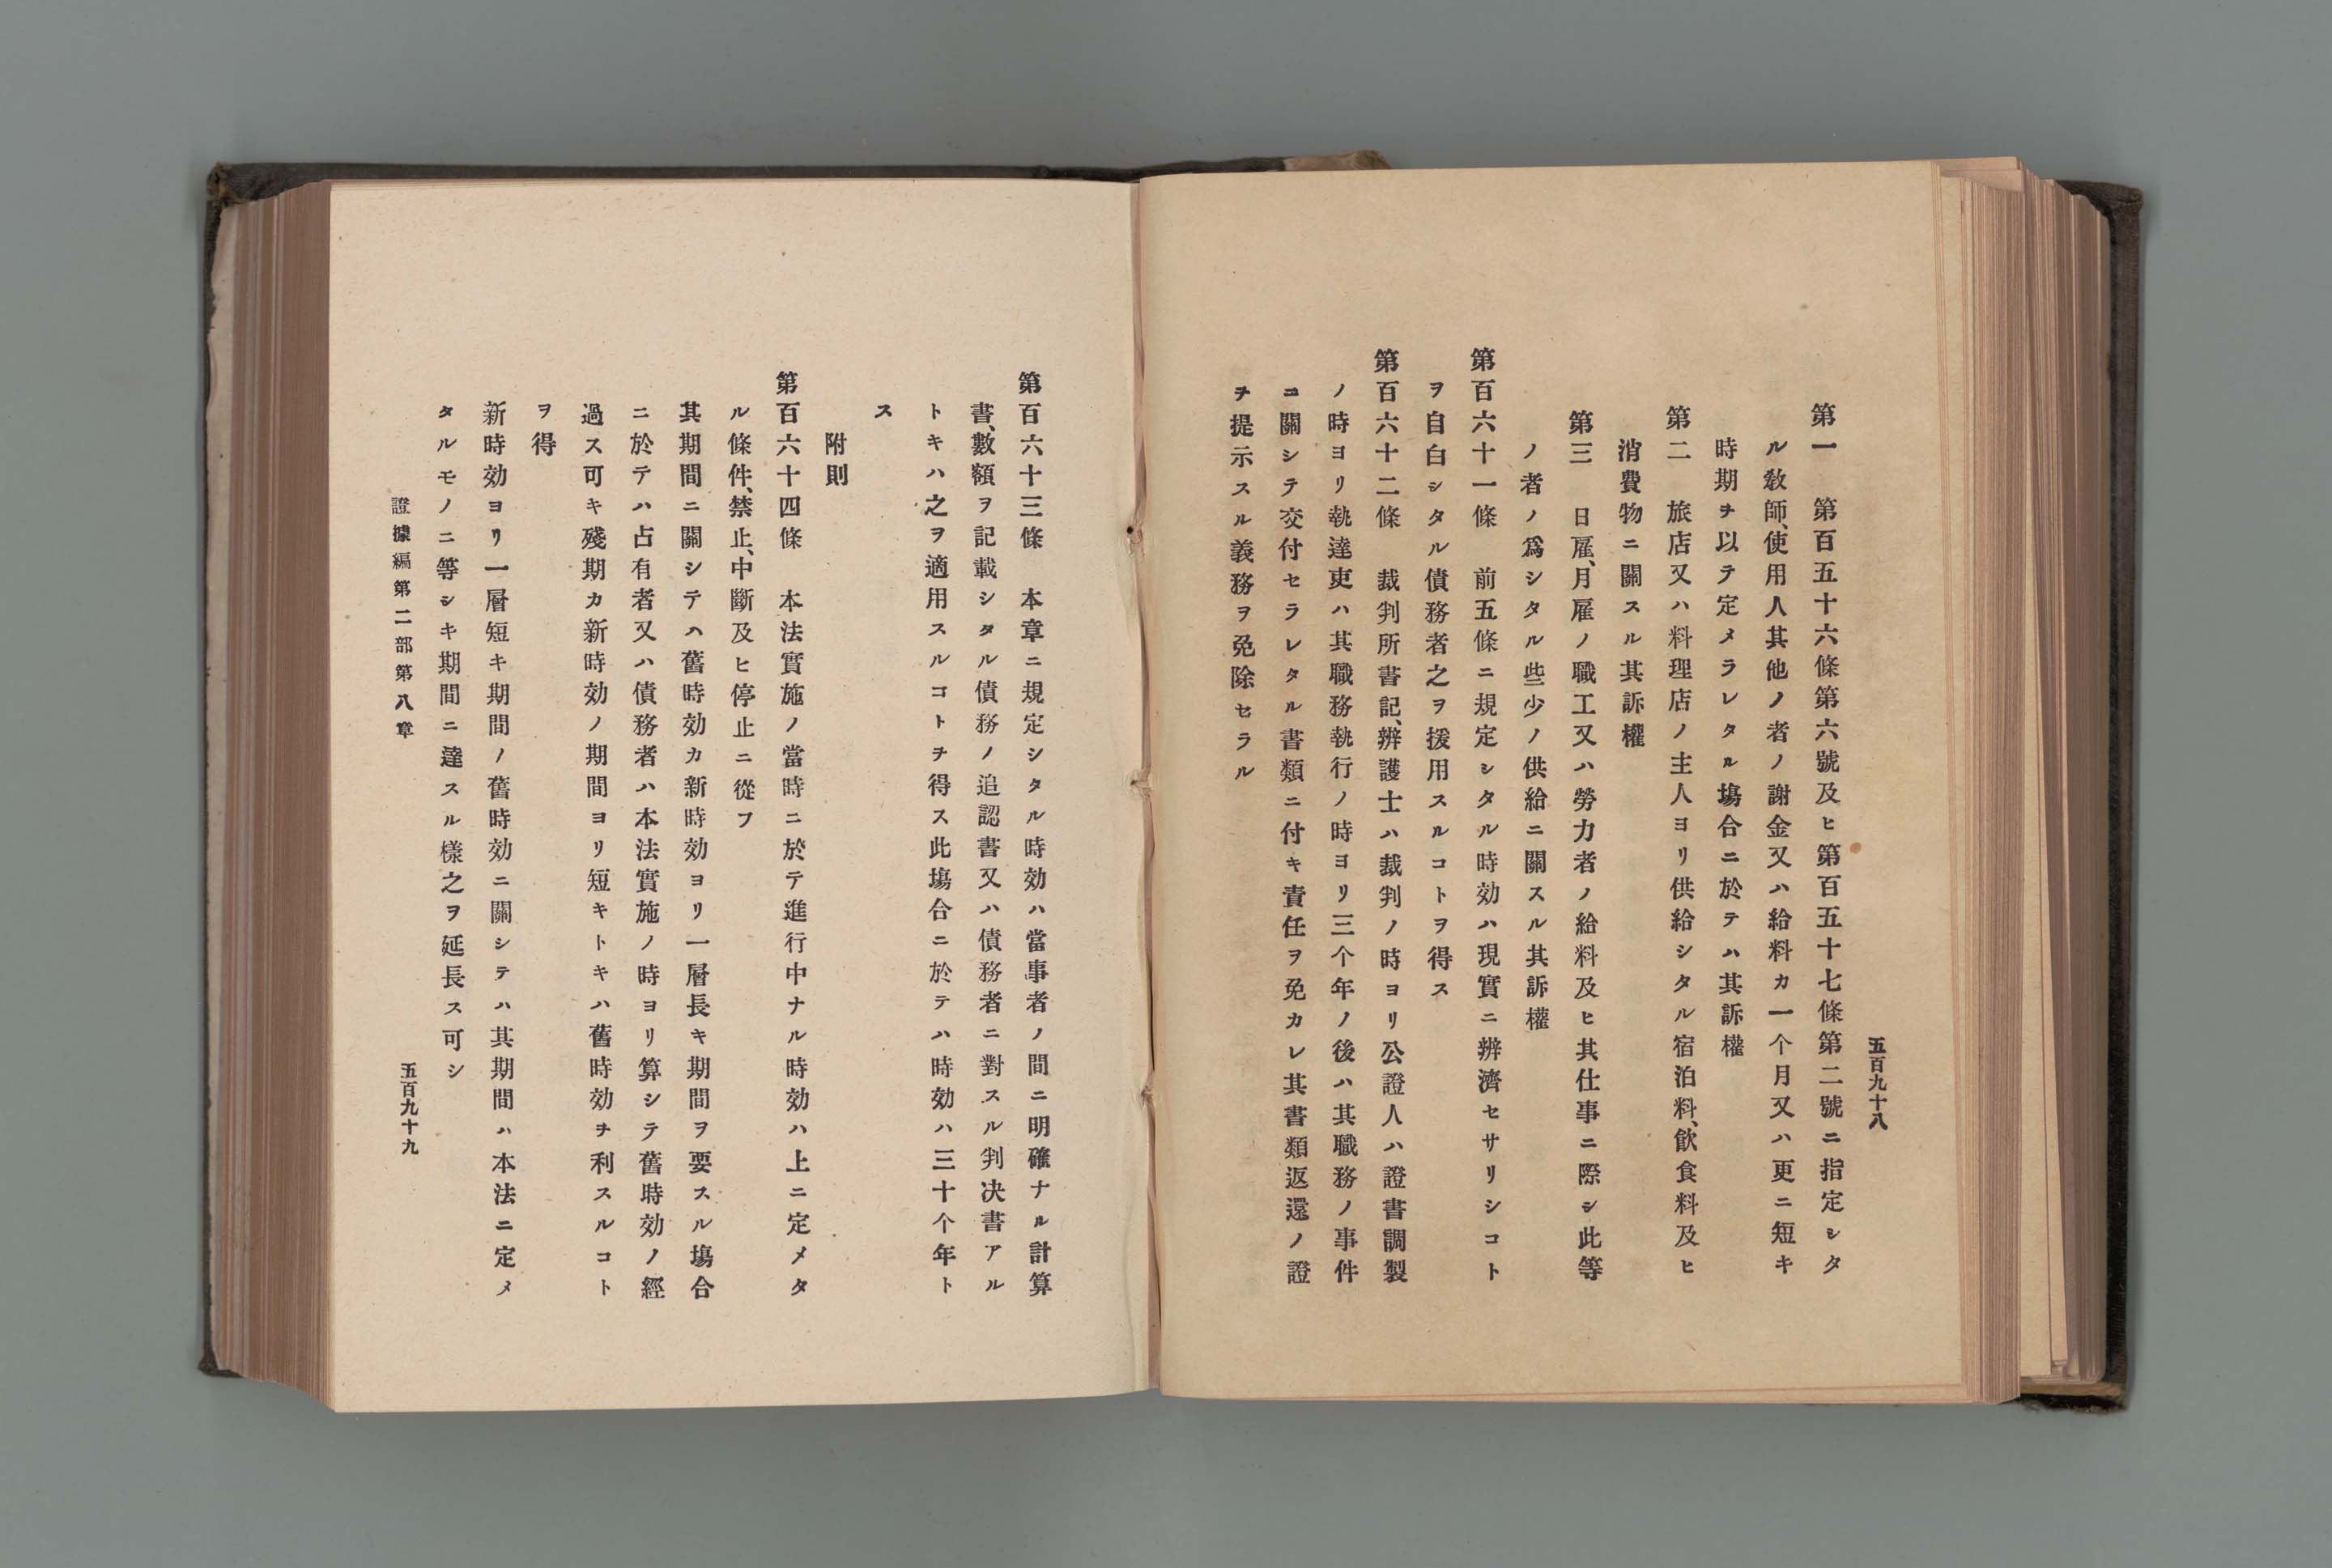 五百九十八
第一　第百五十六條第六號及ヒ第百五十七條第二號ニ指定シタ
ル敎師、使用人其他ノ者ノ謝金又ハ給料カ一个月又ハ更ニ短キ
時期ヲ以テ定メラレタル塲合ニ於テハ其訴權
第二　旅店又ハ料理店ノ主人ヨリ供給シタル宿泊料、飮食料及ヒ
消費物ニ關スル其訴權
第三　日雇、月雇ノ職工又ハ勞力者ノ給料及ヒ其仕事ニ際シ此等
ノ者ノ爲シタル些少ノ供給ニ關スル其訴權
第百六十一條　前五條ニ規定シタル時効ハ現實ニ辨濟セサリシコト
ヲ自白シタル債務者之ヲ援用スルコトヲ得ス
第百六十二條　裁判所書記、辨護士ハ裁判ノ時ヨリ公證人ハ證書調製
ノ時ヨリ執達吏ハ其職務執行ノ時ヨリ三个年ノ後ハ其職務ノ事件
ニ關シテ交付セラレタル書類ニ付キ責任ヲ免カレ其書類返還ノ證
ヲ提示スル義務ヲ免除セラル
第百六十三條　本章ニ規定シタル時効ハ當事者ノ間ニ明確ナル計算
書、數額ヲ記載シタル債務ノ追認書又ハ債務者ニ對スル判决書アル
トキハ之ヲ適用スルコトヲ得ス此塲合ニ於テハ時効ハ三十个年ト
ス
附則
第百六十四條　本法實施ノ當時ニ於テ進行中ナル時効ハ上ニ定メタ
ル條件、禁止、中斷及ヒ停止ニ從フ
其期間ニ關シテハ舊時効カ新時効ヨリ一層長キ期間ヲ要スル塲合
ニ於テハ占有者又ハ債務者ハ本法實施ノ時ヨリ算シテ舊時効ノ經
過ス可キ殘期カ新時効ノ期間ヨリ短キトキハ舊時効ヲ利スルコト
ヲ得
新時効ヨリ一層短キ期間ノ舊時効ニ關シテハ其期間ハ本法ニ定メ
タルモノニ等シキ期間ニ達スル樣之ヲ延長ス可シ
證據編第二部第八章
五百九十九